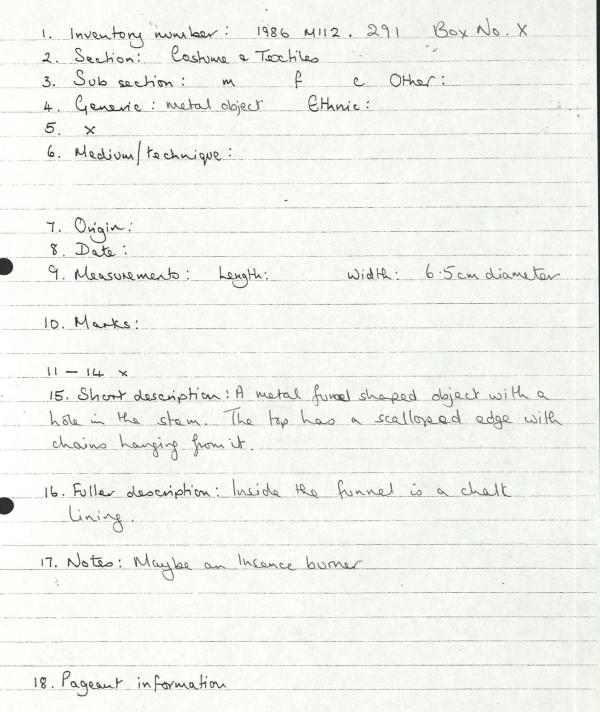 1. Inventory number: 1986 M112. 291 Box No. X
2. Section: Costume & Textiles
3. Sub section: m f c Other:
4. Generic: metal object Ethnic:
5. x
6. Medium/technique:
7. Origin:
8. Date:
9. Measurements: Length: Width: 6.5cm diameter
10. Marks:
11 - 14 x
15. Short description: A metal funnel shaped object with a
hole in the stem. The top has a scalloped edge with
chains hanging from it.
16. Fuller description: Inside the funnel is a chalk
lining.
17. Notes: Maybe an Insence burner
18. Pageant information